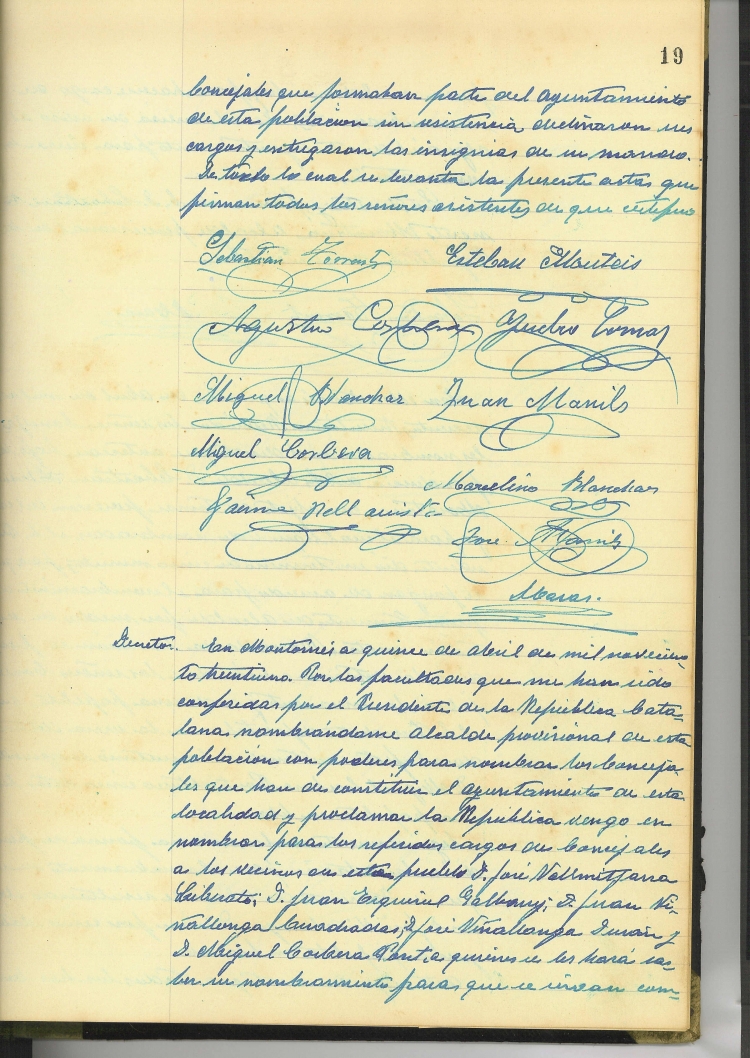 19
Concejales que formaban parte del Ayuntamiento
de esta población sin resistencia declinaron sus
cargos y entregaron las insignias de su mando.
De todo lo cual se levanta la presente actas que
firman todos los señores asistentes de que certifico
Sebastián Torrents
Esteban
Agustin Corbera
Pedro Tomas
Miguel Blanchar
Juan Manils
Miguel Corbera
Marcelino Blanchar
Jaime Vell
Jose Manils
Decreto.
En Montornés a quince de abril de mil novecien
to treintiuno. Por las facultades que me han sido
conferidas por el Presidente de la República Cata-
lana nombrándome Alcalde provisional de esta
población con poderes para nombrar los Conceja-
les que han de constituir el ayuntamiento de esta
localidad y proclamar la República vengo en
nombrar para los referidos cargos de Concejales
a los vecinos de este pueblo D. José Vallmitjana
Liberato; D. Juan Esquirol Galbany; D. Juan Vi-
ñallonga Cuadradas; D. José Viñallonga Durán y
D. Miguel Corbera Pont a quienes se les hará sa-
ber su nombramiento paras que se sirvan com-